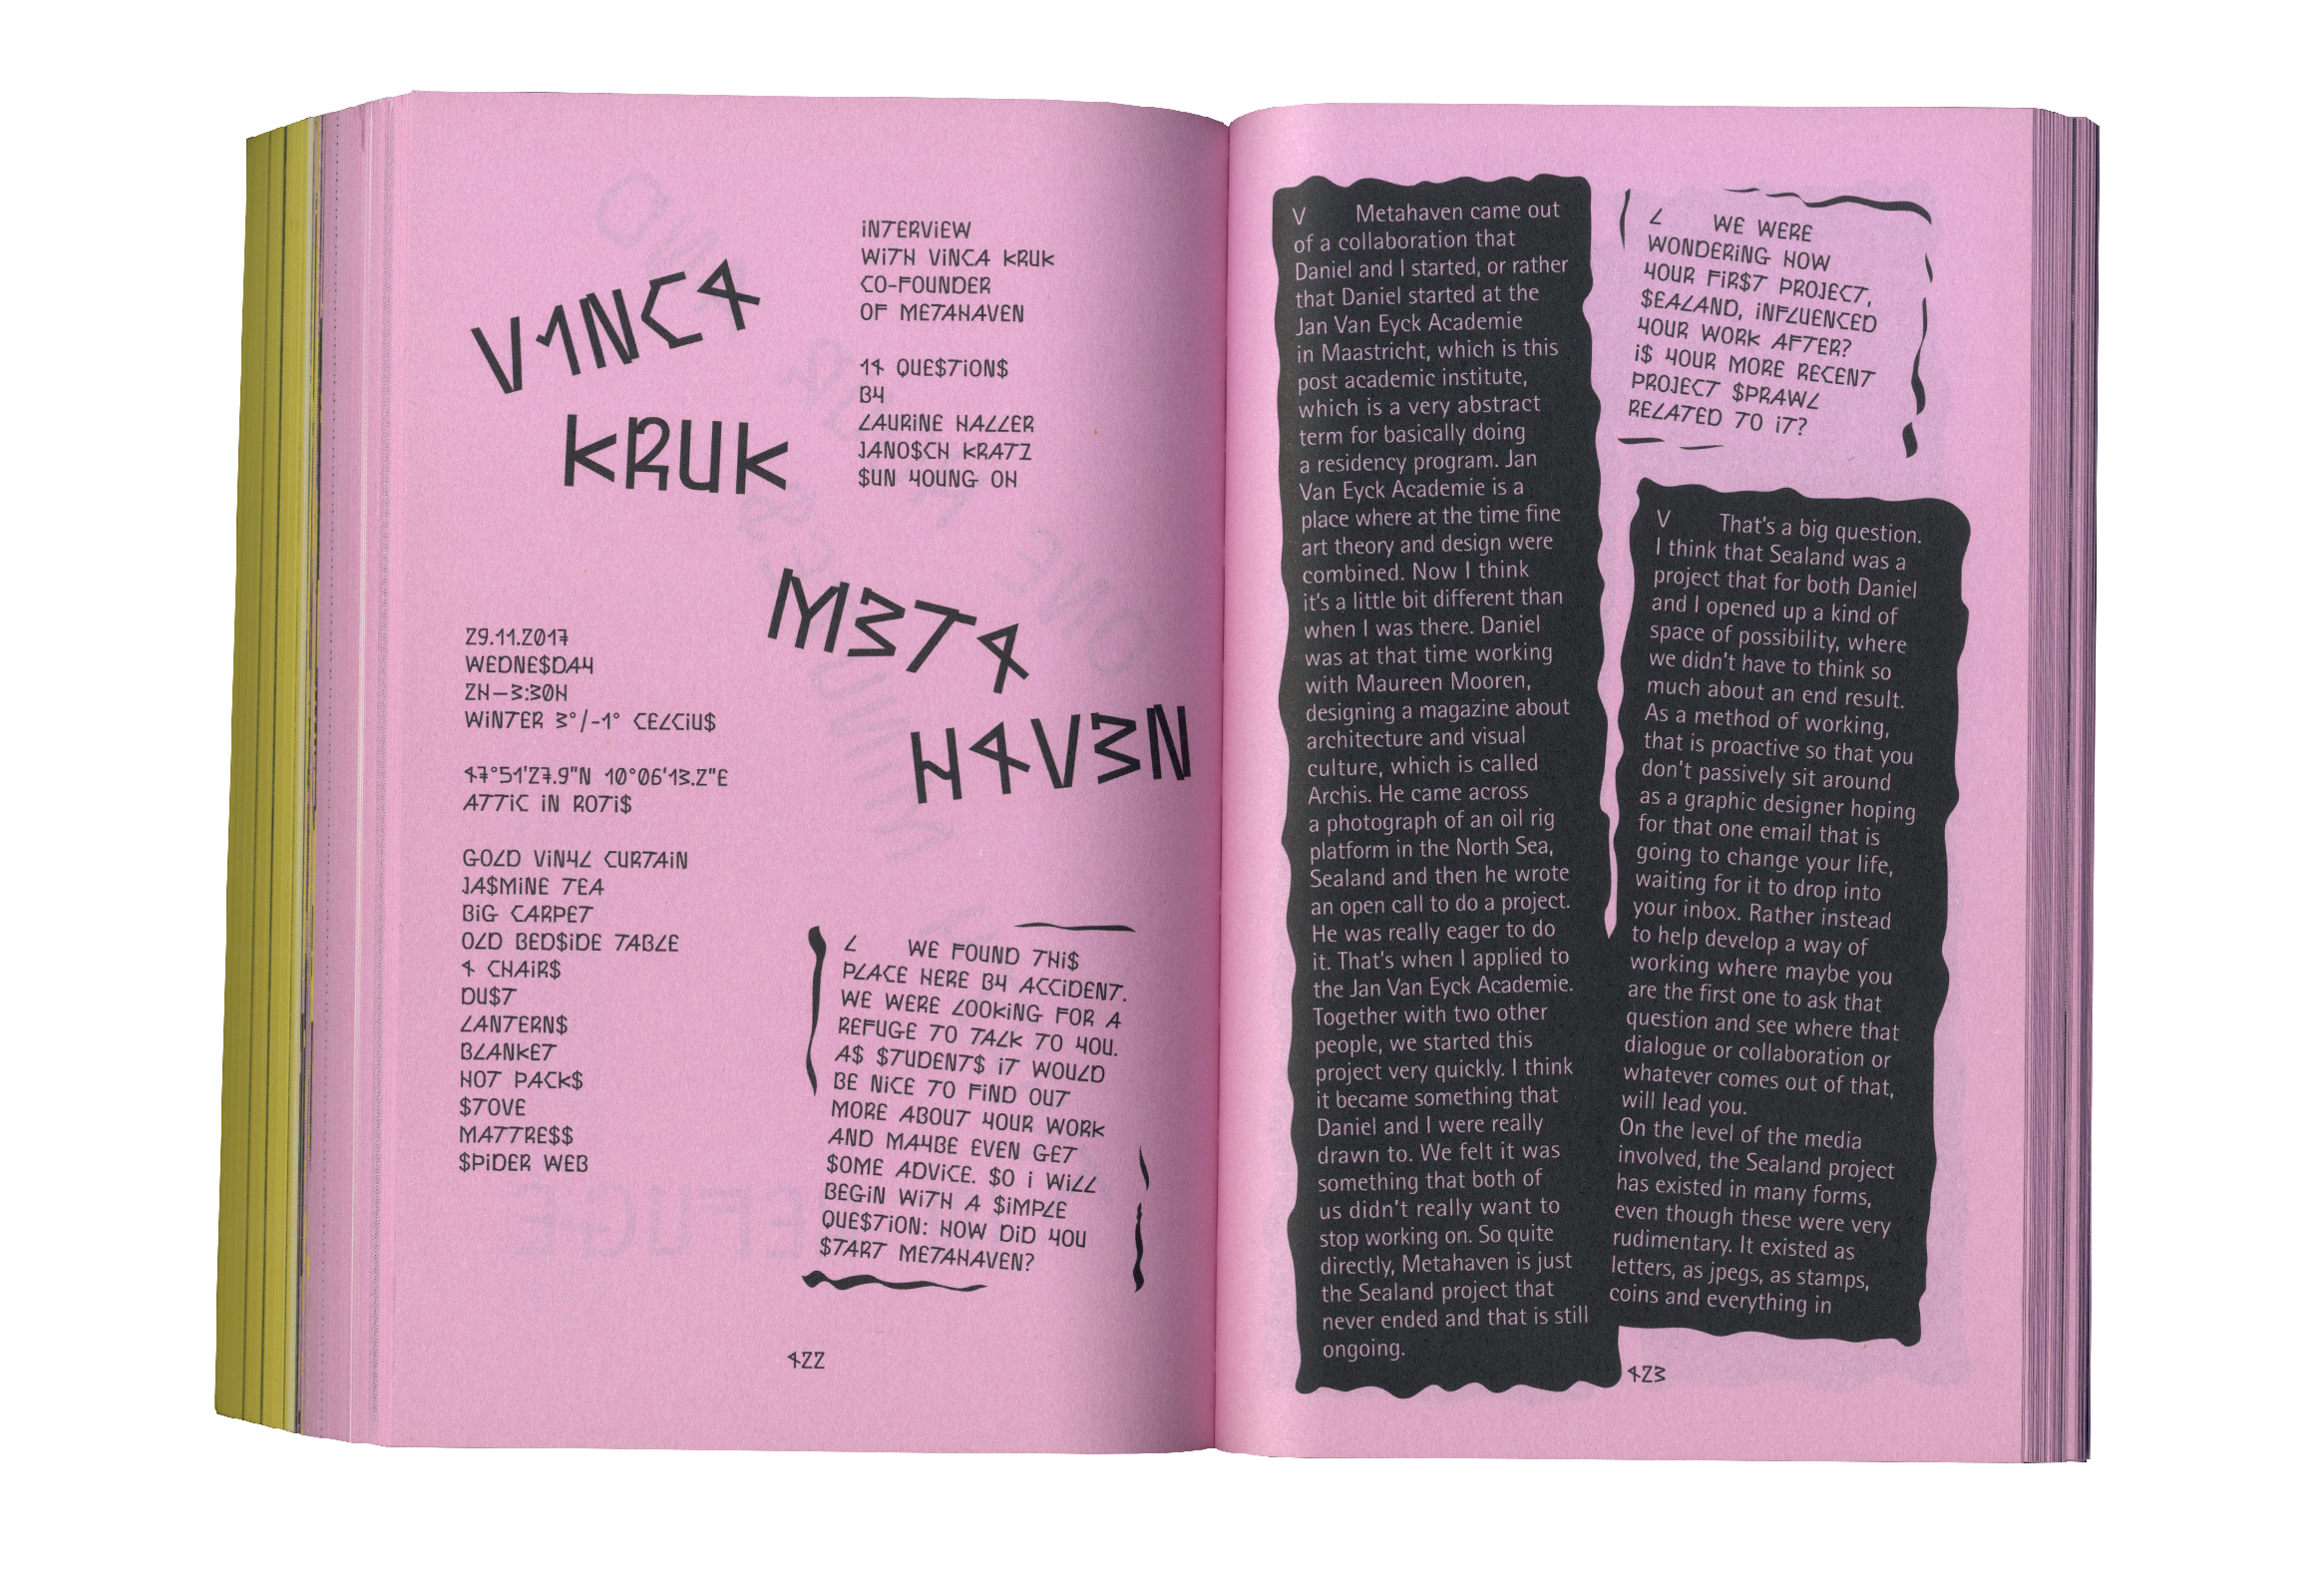 V1NCA
KRUK
M3TA
HAV3N
iNTERViEW
WiTH ViNCA KRUK
CO-FOUNDER
OF METAHAVEN
14 QUE$TiON$
BY
LAURiNE HALLER
JANO$CH KRATZ
$UN YOUNG OH
29.11.2017
WEDNE$DAY
2H—3:30H
WiNTER 3°/-1° CELCiU$
47°51'27.9"N 10°06'13.2"E
ATTiC iN ROTi$
GOLD ViNYL CURTAiN
JA$MiNE TEA
BiG CARPET
OLD BED$iDE TABLE
4 CHAiR$
DU$T
LANTERN$
BLANKET
HOT PACK$
$TOVE
MATTRE$$
$PiDER WEB
L WE FOUND THi$
PLACE HERE BY ACCiDENT.
WE WERE LOOKiNG FOR A
REFUGE TO TALK TO YOU.
A$ $TUDENT$ iT WOULD
BE NiCE TO FiND OUT
MORE ABOUT YOUR WORK
AND MAYBE EVEN GET
$OME ADViCE. $O i WiLL
BEGiN WiTH A $iMPLE
QUE$TiON: HOW DiD YOU
$TART METAHAVEN?
422
V Metahaven came out
of a collaboration that
Daniel and I started, or rather
that Daniel started at the
Jan Van Eyck Academie
in Maastricht, which is this
post academic institute,
which is a very abstract
term for basically doing
a residency program. Jan
Van Eyck Academie is a
place where at the time fine
art theory and design were
combined. Now I think
it's a little bit different than
when I was there. Daniel
was at that time working
with Maureen Mooren,
designing a magazine about
architecture and visual
culture, which is called
Archis. He came across
a photograph of an oil rig
platform in the North Sea,
Sealand and then he wrote
an open call to do a project.
He was really eager to do
it. That's when I applied to
the Jan Van Eyck Academie.
Together with two other
people, we started this
project very quickly. I think
it became something that
Daniel and I were really
drawn to. We felt it was
something that both of
us didn't really want to
stop working on. So quite
directly, Metahaven is just
the Sealand project that
never ended and that is still
ongoing.
L WE WERE
WONDERiNG HOW
YOUR FiR$T PROJECT,
$EALAND, iNFLUENCED
YOUR WORK AFTER?
i$ YOUR MORE RECENT
PROJECT $PRAWL
RELATED TO iT?
V That's a big question.
I think that Sealand was a
project that for both Daniel
and I opened up a kind of
space of possibility, where
we didn't have to think so
much about an end result.
As a method of working,
that is proactive so that you
don't passively sit around
as a graphic designer hoping
for that one email that is
going to change your life,
waiting for it to drop into
your inbox. Rather instead
to help develop a way of
working where maybe you
are the first one to ask that
question and see where that
dialogue or collaboration or
whatever comes out of that,
will lead you.
On the level of the media
involved, the Sealand project
has existed in many forms,
even though these were very
rudimentary. It existed as
letters, as jpegs, as stamps,
coins and everything in
423